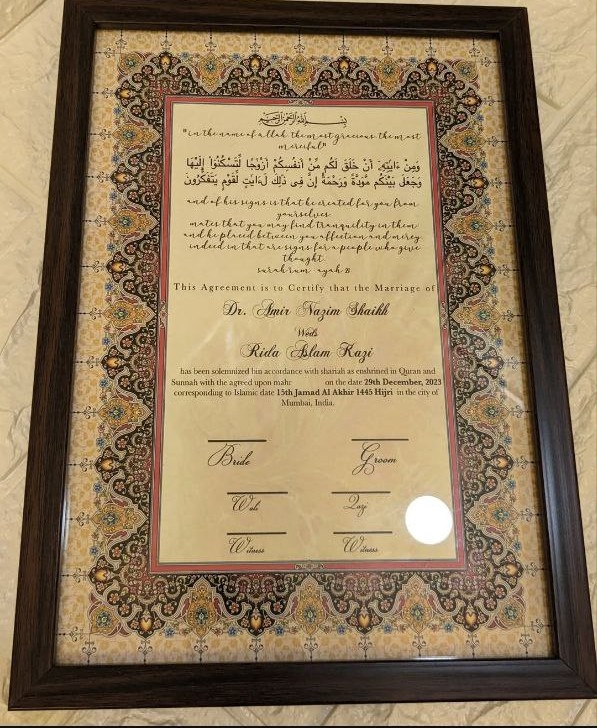 بسم الله الرحمن الرحيم
"in the name of allah the most gracious the most
merciful"
وَمِنْ ءَايَٰتِهِۦٓ أَنْ خَلَقَ لَكُم مِّنْ أَنفُسِكُمْ أَزْوَٰجًا لِّتَسْكُنُوٓا۟ إِلَيْهَا
وَجَعَلَ بَيْنَكُم مَّوَدَّةً وَرَحْمَةً إِنَّ فِى ذَٰلِكَ لَءَايَٰتٍ لِّقَوْمٍ يَتَفَكَّرُونَ
and of his signs is that he created for you from
yourselves
mates that you may find tranquility in them
and he placed between you affection and mercy.
indeed in that are signs for a people who give
thought.
surah rum ayah 21
This Agreement is to Certify that the Marriage of
Dr. Amir Nazim Shaikh
Weds
Rida Aslam Kazi
has been solemnized bin accordance with shariah as enshrined in Quran and
Sunnah with the agreed upon mahr on the date 29th December, 2023
corresponding to Islamic date 15th Jamad Al Akhir 1445 Hijri in the city of
Mumbai, India.
Bride Groom
Wali Qazi
Witness Witness